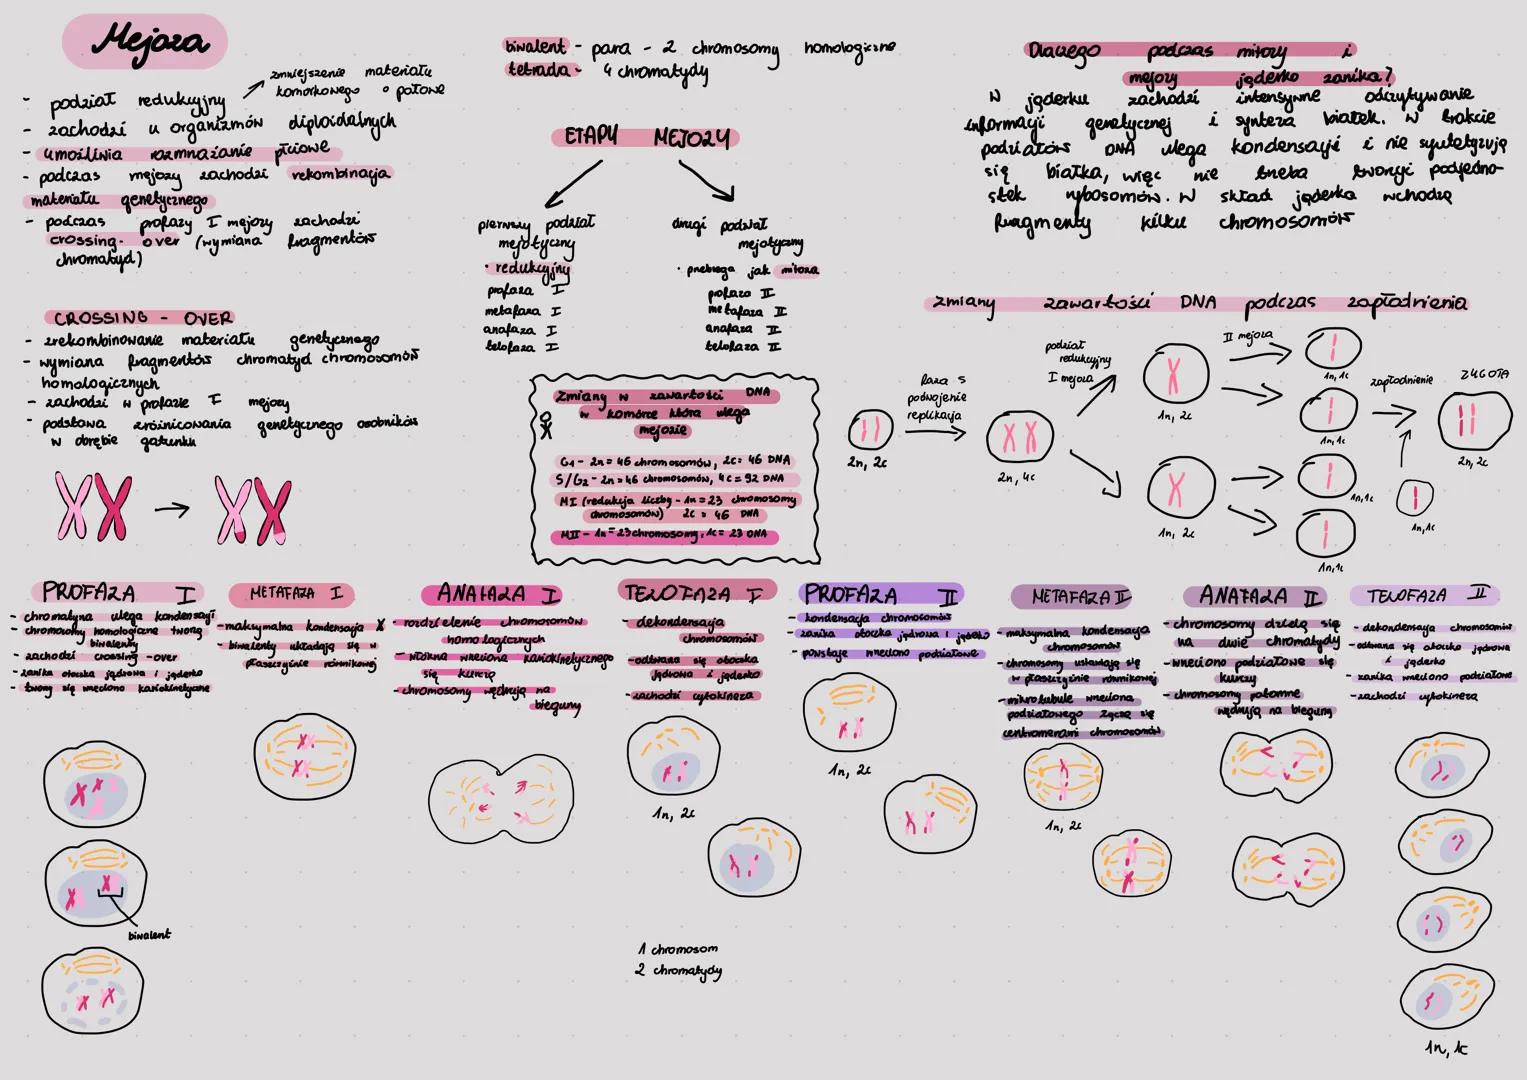 Mejoza
zmniejszenie materiału
komórkowego o połowę
- podział redukcyjny
- zachodzi u organizmów diploidalnych
- umożliwia rozmnażanie płciowe
- podczas mejozy zachodzi rekombinacja
materiału genetycznego
- podczas profazy I mejozy zachodzi
crossing-over (wymiana fragmentów
chromatyd)
CROSSING - OVER
- zrekombinowanie materiału genetycznego
- wymiana fragmentów chromatyd chromosomów
homologicznych
- zachodzi w profazie I mejozy
- podstawa zróżnicowania genetycznego osobników
w obrębie gatunku
biwalent - para - 2 chromosomy homologiczne
tetrada - 4 chromatydy
ETAPY MEJOZY
pierwszy podział
mejotyczny
· redukcyjny
profaza I
metafaza I
anafaza I
telofaza I
drugi podział
mejotyczny
· przebiega jak mitoza
profaza II
metafaza II
anafaza II
telofaza II
Zmiany w zawartości DNA
w komórce która ulega
mejozie
G1 - 2n = 46 chromosomów, 2c = 46 DNA
S/G2 - 2n = 46 chromosomów, 4c = 92 DNA
MI (redukcja liczby - 1n = 23 chromosomy
chromosomów) 2c = 46 DNA
MII - 1n = 23 chromosomy, 1c = 23 DNA
Dlaczego podczas mitozy i
mejozy jąderko zanika?
W jąderku zachodzi intensywne odczytywanie
informacji genetycznej i synteza białek. W trakcie
podziałów DNA ulega kondensacji i nie syntetyzują
się białka, więc nie trzeba tworzyć podjedno-
stek rybosomów. W skład jąderka wchodzą
fragmenty kilku chromosomów
Zmiany zawartości DNA podczas zapłodnienia
2n, 2c
faza S
podwojenie
replikacja
2n, 4c
podział
redukcyjny
I mejoza
1n, 2c
1n, 2c
II mejoza
1n, 1c
1n, 1c
1n, 1c
1n, 1c
zapłodnienie
1n, 1c
ZYGOTA
2n, 2c
PROFAZA I
- chromatyna ulega kondensacji
- chromosomy homologiczne tworzą
biwalenty
- zachodzi crossing-over
- zanika otoczka jądrowa i jąderko
- tworzy się wrzeciono kariokinetyczne
biwalent
METAFAZA I
- maksymalna kondensacja X
- biwalenty układają się w
płaszczyźnie równikowej
ANAFAZA I
- rozdzielenie chromosomów
homologicznych
- włókna wrzeciona kariokinetycznego
się kurczą
- chromosomy wędrują na
bieguny
TELOFAZA I
- dekondensacja
chromosomów
- odtwarza się otoczka
jądrowa i jąderko
- zachodzi cytokineza
1n, 2c
1 chromosom
2 chromatydy
PROFAZA II
- kondensacja chromosomów
- zanika otoczka jądrowa i jąderko
- powstaje wrzeciono podziałowe
1n, 2c
METAFAZA II
- maksymalna kondensacja
chromosomów
- chromosomy ustawiają się
w płaszczyźnie równikowej
- mikrotubule wrzeciona
podziałowego łączą się
centromerami chromosomów
1n, 2c
ANAFAZA II
- chromosomy dzielą się
na dwie chromatydy
- wrzeciono podziałowe się
kurczy
- chromosomy potomne
wędrują na bieguny
TELOFAZA II
- dekondensacja chromosomów
- odtwarza się otoczka jądrowa
i jąderko
- zanika wrzeciono podziałowe
- zachodzi cytokineza
1n, 1c